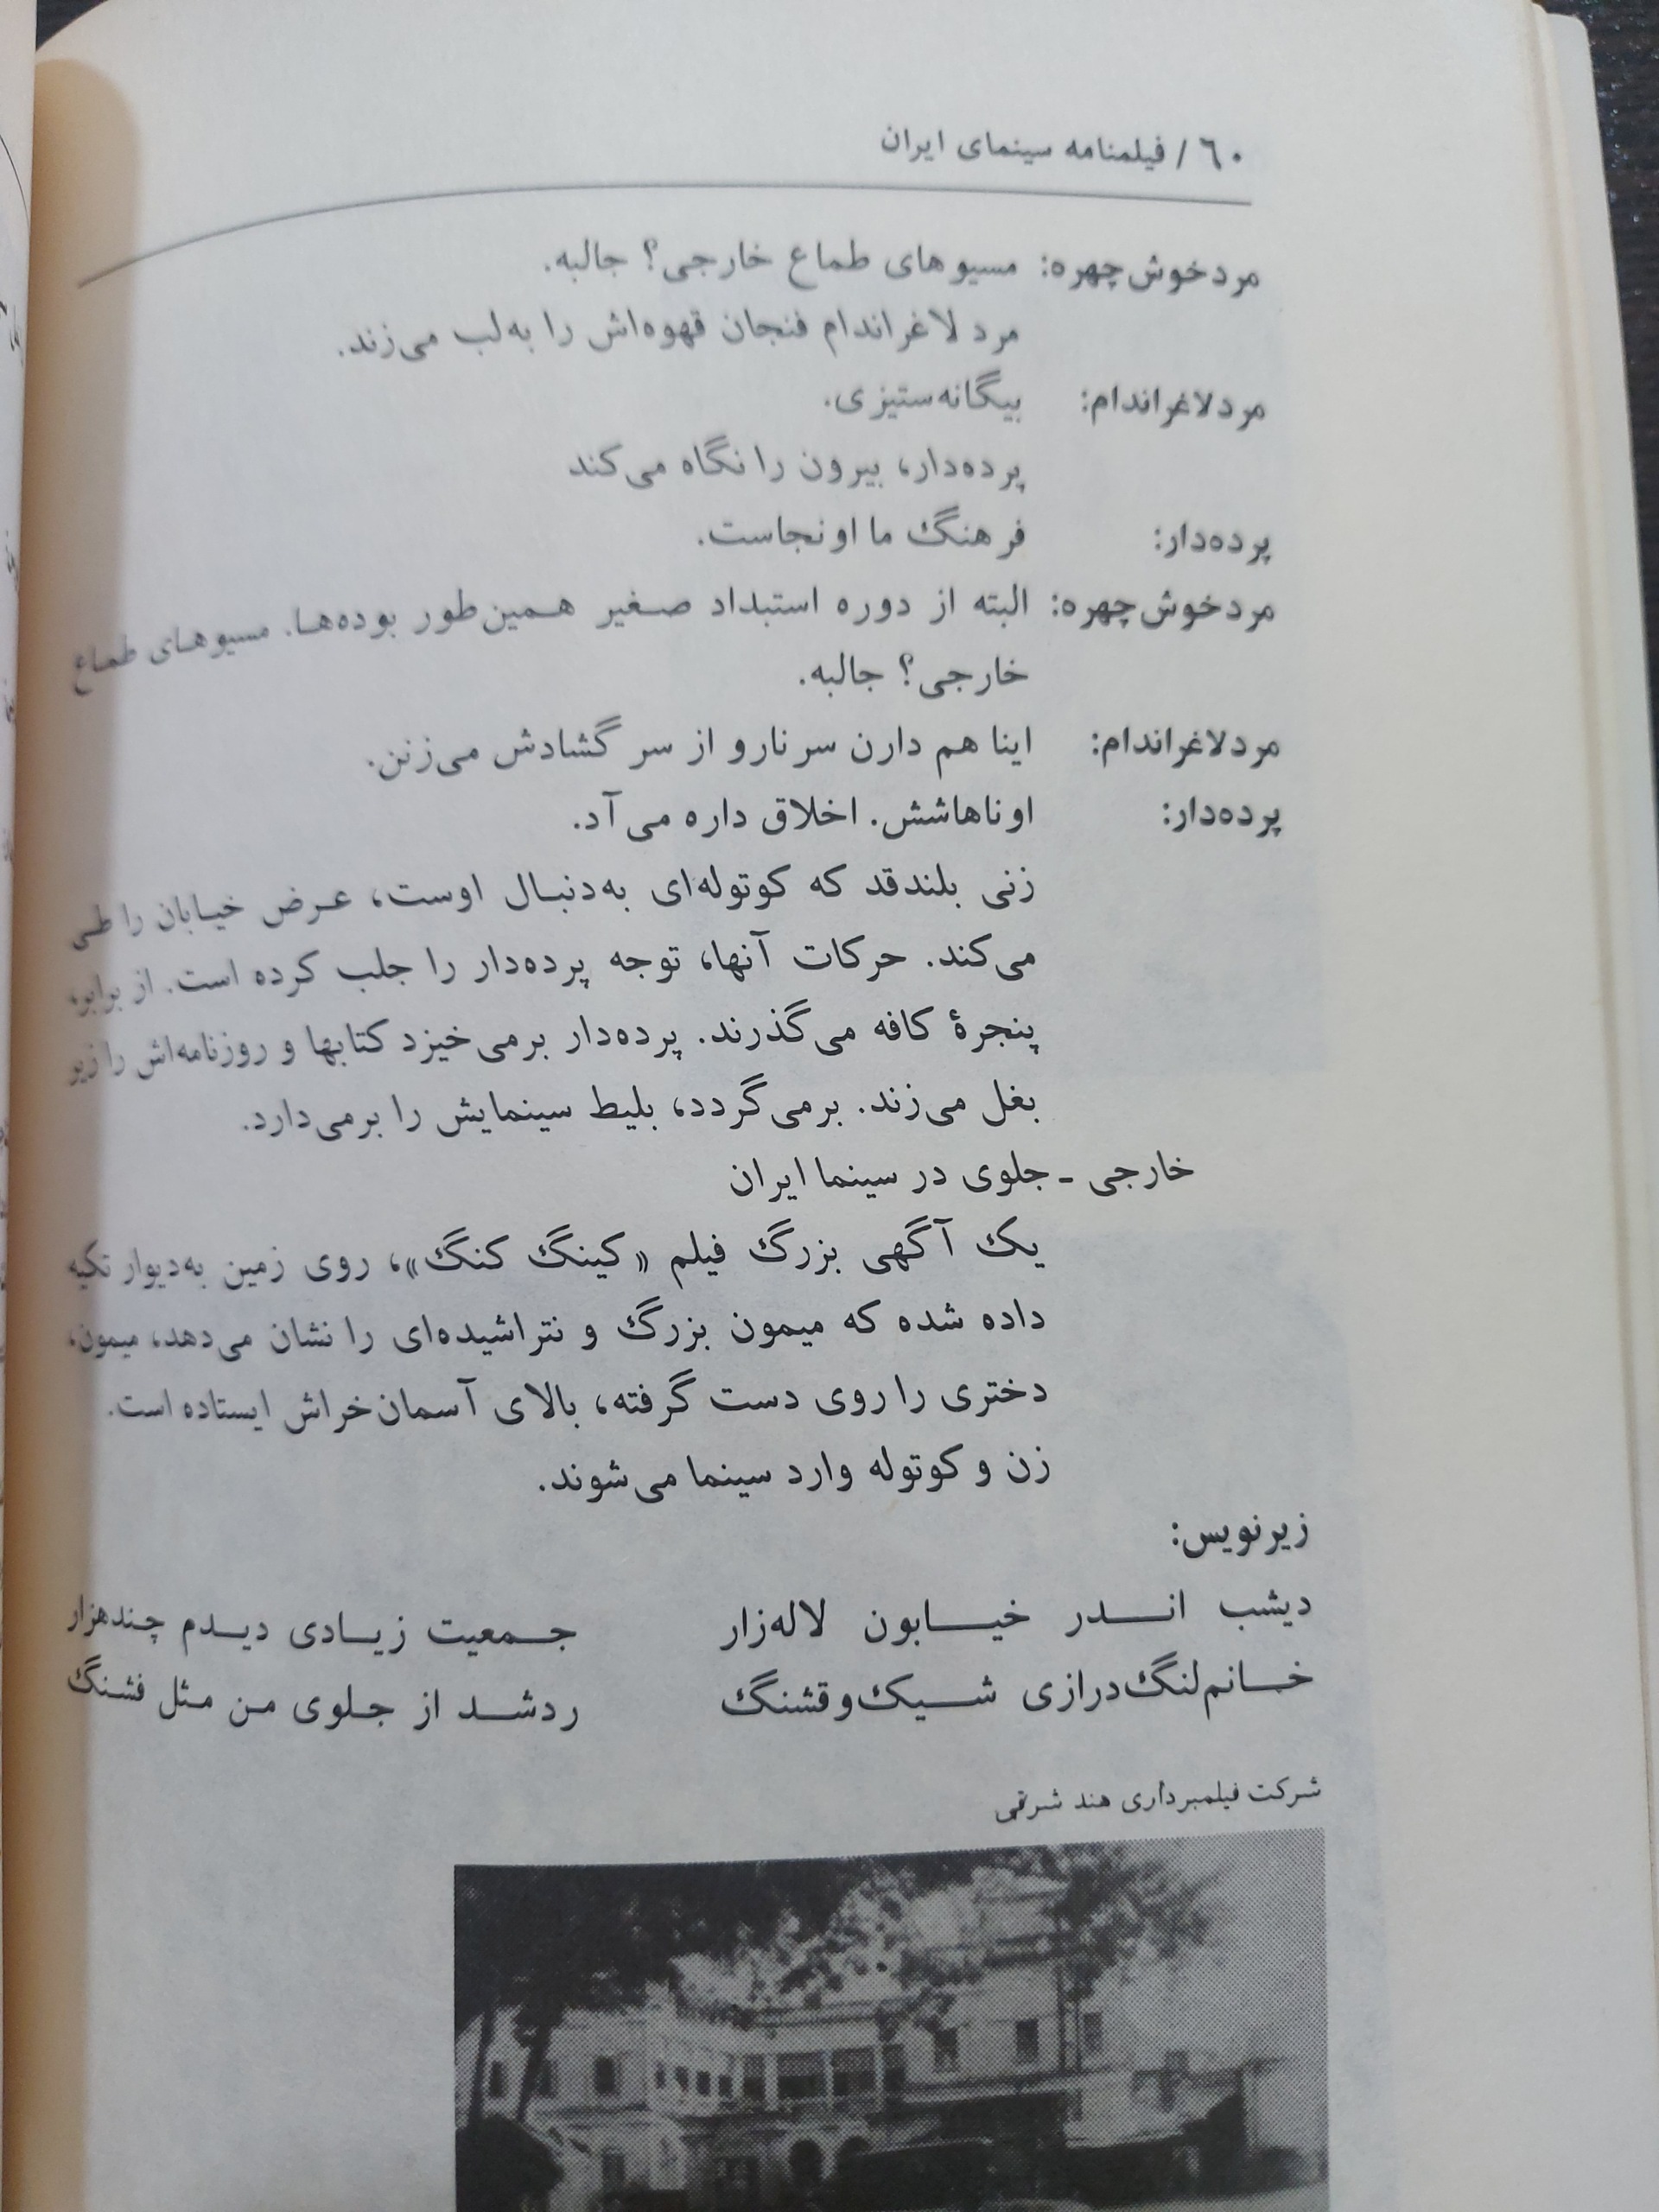 ۶۰ / فیلمنامه سینمای ایران
مردخوش‌چهره: مسیوهای طماع خارجی؟ جالبه.
مرد لاغراندام فنجان قهوه‌اش را به‌لب می‌زند.
مردلاغراندام: بیگانه‌ستیزی.
پرده‌دار، بیرون را نگاه می‌کند
پرده‌دار: فرهنگ ما اونجاست.
مردخوش‌چهره: البته از دوره استبداد صغیر همین‌طور بوده‌ها. مسیوهای طماع
خارجی؟ جالبه.
مردلاغراندام: اینا هم دارن سرنارو از سر گشادش می‌زنن.
پرده‌دار: اوناهاشش. اخلاق داره می‌آد.
زنی بلندقد که کوتوله‌ای به‌دنبال اوست، عرض خیابان را طی
می‌کند. حرکات آنها، توجه پرده‌دار را جلب کرده است. از برابر،
پنجرهٔ کافه می‌گذرند. پرده‌دار برمی‌خیزد کتابها و روزنامه‌اش را زیر
بغل می‌زند. برمی‌گردد، بلیط سینمایش را برمی‌دارد.
خارجی ـ جلوی در سینما ایران
یک آگهی بزرگ فیلم «کینگ کنگ»، روی زمین به‌دیوار تکیه
داده شده که میمون بزرگ و نتراشیده‌ای را نشان می‌دهد، میمون،
دختری را روی دست گرفته، بالای آسمان‌خراش ایستاده است.
زن و کوتوله وارد سینما می‌شوند.
زیرنویس:
دیشب اندر خیابون لاله‌زار جمعیت زیادی دیدم چندهزار
خانم‌لنگ‌درازی شیک‌وقشنگ ردشد از جلوی من مثل فشنگ
شرکت فیلمبرداری هند شرقی